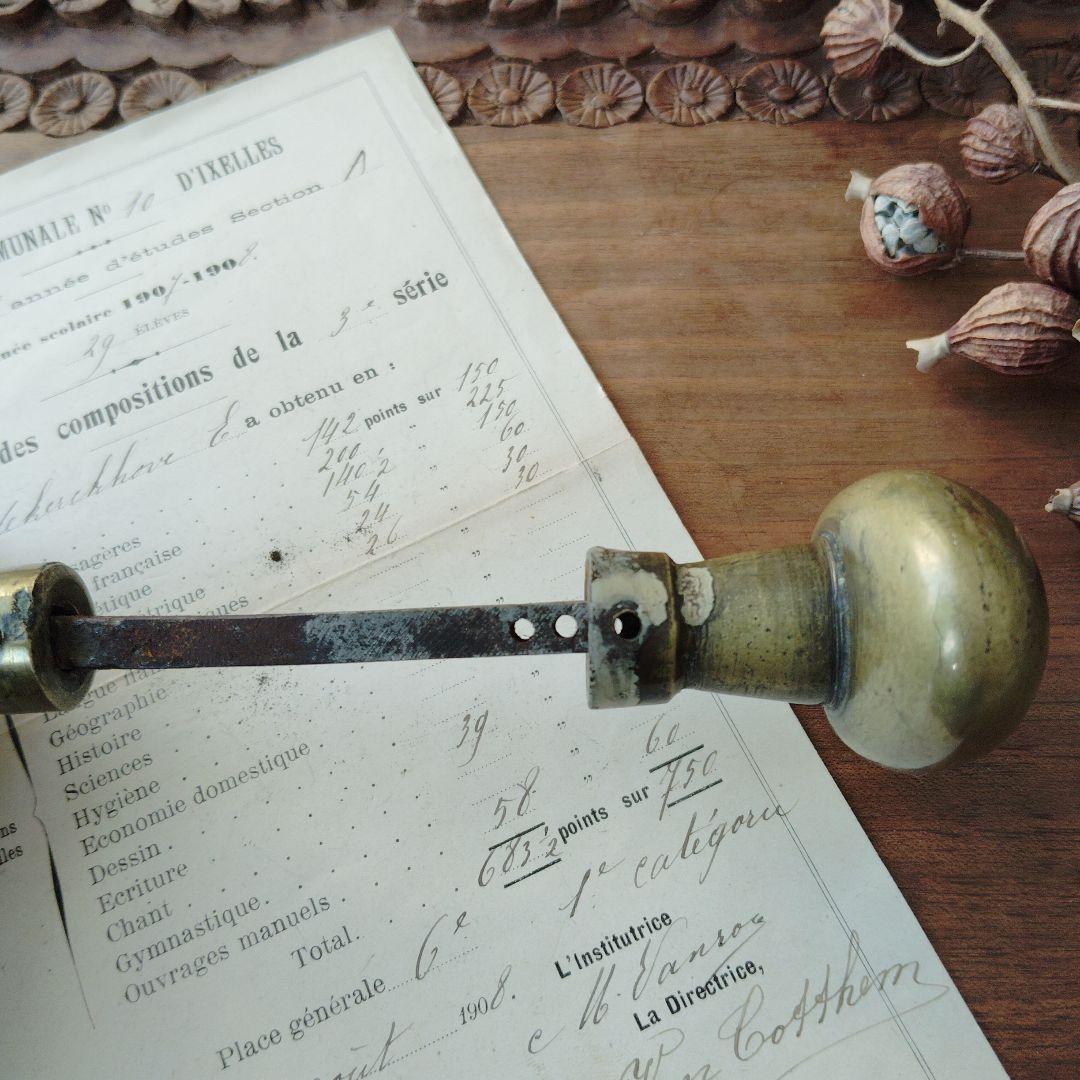 MUNALE Nº 10 D'IXELLES
année d'études Section A
scolaire 1907-1908.
29 ÉLÈVES
des compositions de la 3e série
E a obtenu en :
142 points sur 150
200 " 225
140 1/2 " 150
54 " 60
24 " 30
26 " 30
française
Géographie
Histoire
Sciences
Hygiène
Economie domestique 39 " 60
Dessin
Ecriture
Chant
Gymnastique
Ouvrages manuels 58
Total. 683 1/2 points sur 750
Place générale 6e 1e catégorie
1908.
L'Institutrice
La Directrice,